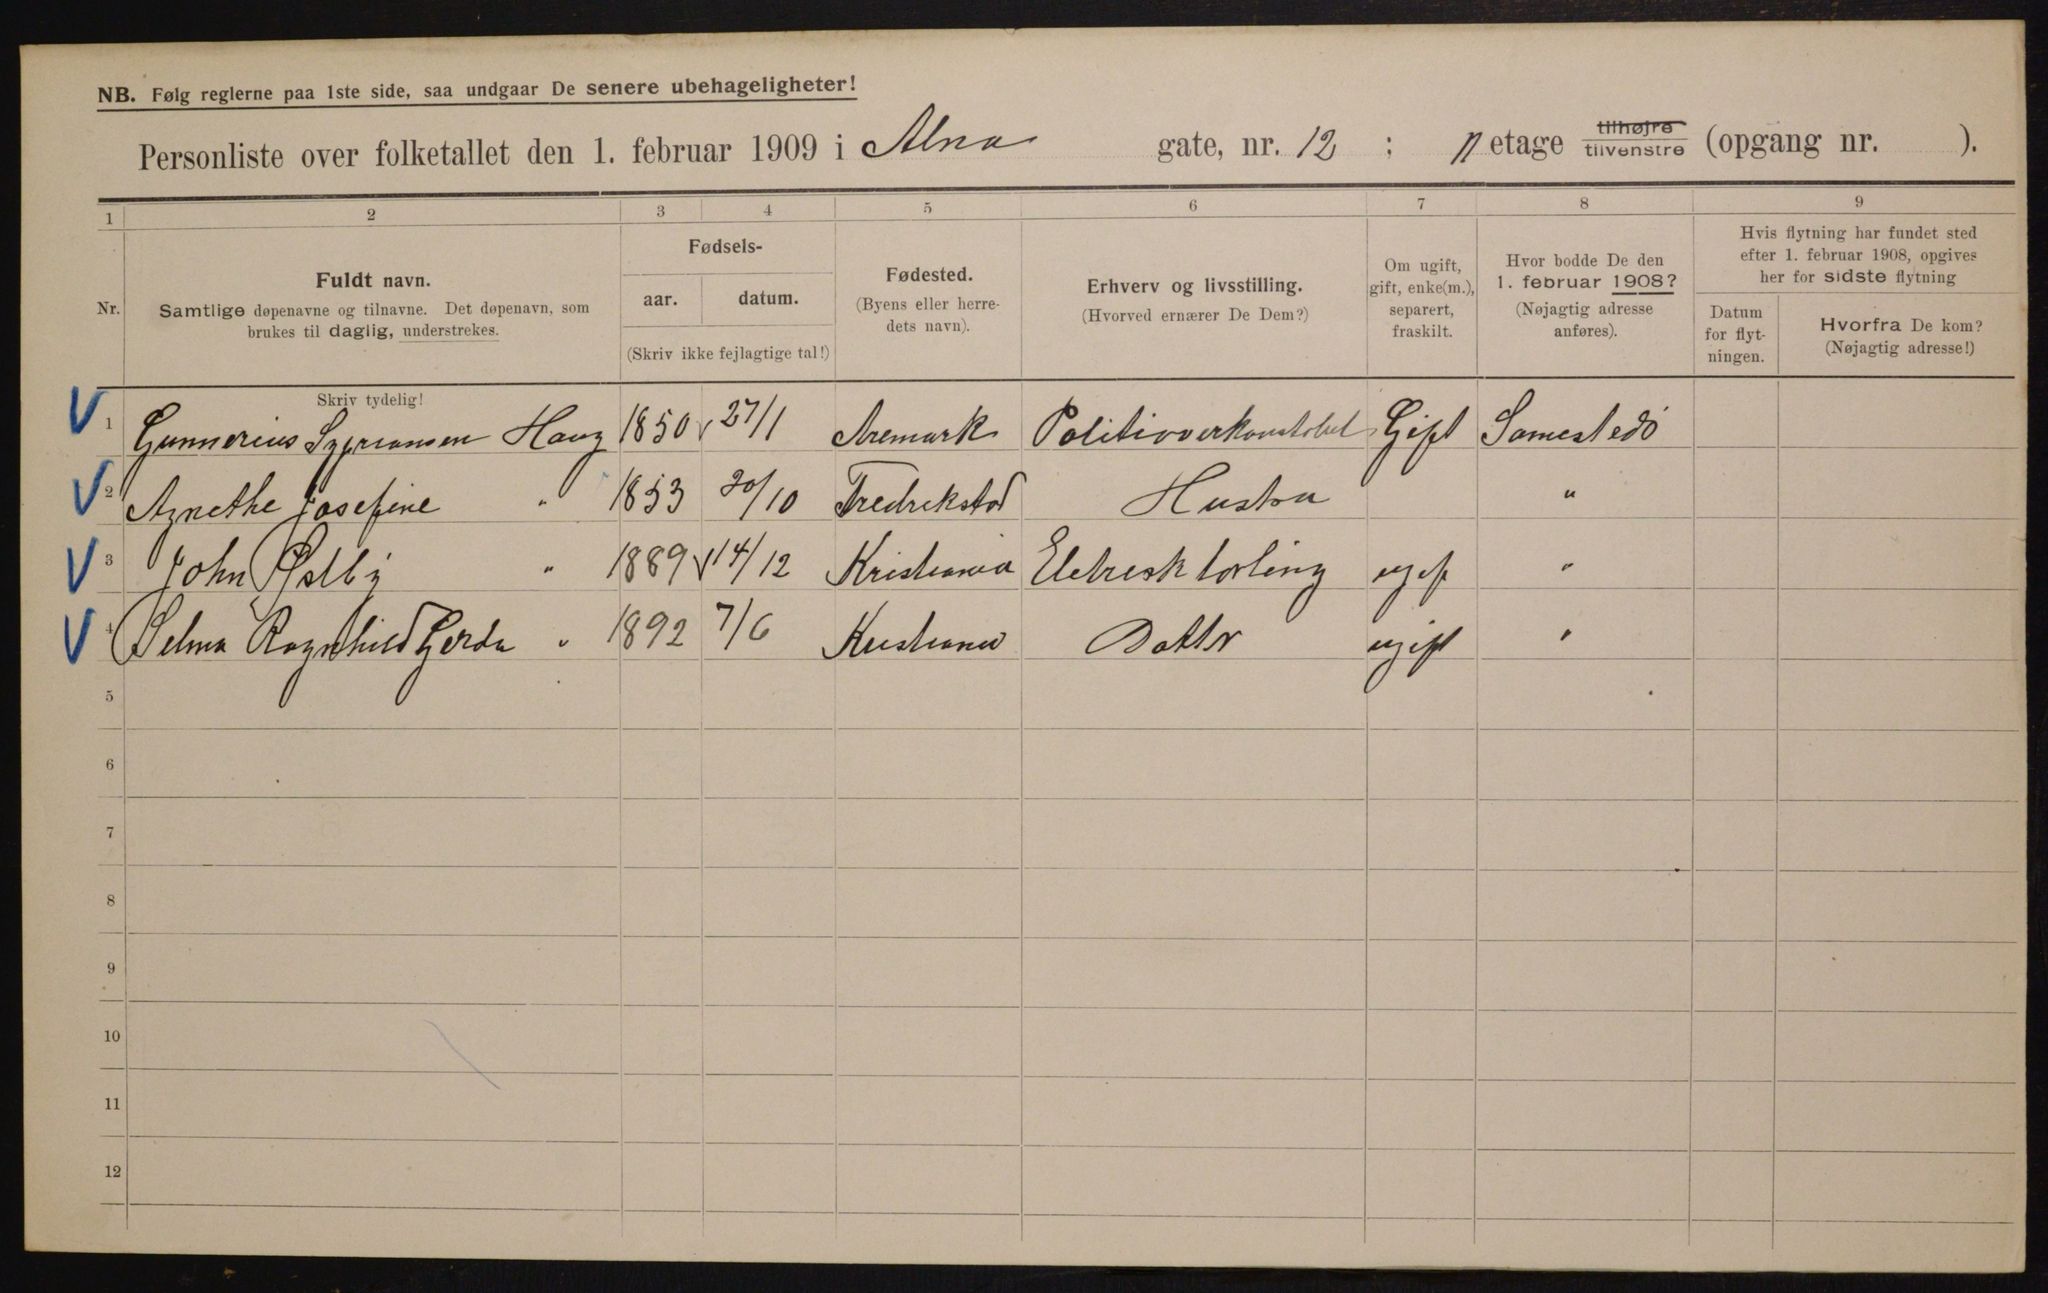 NB. Følg reglerne paa 1ste side, saa undgaar De senere ubehageligheter!
Personliste over folketallet den 1. februar 1909 i Alna gate, nr. 12 ; II etage tilhøjre tilvenstre (opgang nr. ).
1 2 3 4 5 6 7 8 9
Nr.
Fuldt navn.
Samtlige døpenavne og tilnavne. Det døpenavn, som
brukes til daglig, understrekes.
Skriv tydelig!
Fødsels-
aar. datum.
(Skriv ikke fejlagtige tal!)
Fødested.
(Byens eller herre-
dets navn).
Erhverv og livsstilling.
(Hvorved ernærer De Dem?)
Om ugift,
gift, enke(m.),
separert,
fraskilt.
Hvor bodde De den
1. februar 1908?
(Nøjagtig adresse
anføres).
Hvis flytning har fundet sted
efter 1. februar 1908, opgives
her for sidste flytning
Datum
for flyt-
ningen.
Hvorfra De kom?
(Nøjagtig adresse!)
V 1 Gunnerius Sypriansen Haug 1850 27/1 Aremark Politioverkonstabel Gift Samested
V 2 Agnethe Josefine " 1853 20/10 Fredrekstad Hustru "
V 3 John Østby " 1889 14/12 Kristiania Eletresk lorling ugif "
V 4 Selma Ragnhild Gerda " 1892 7/6 Kristiania Datter ugift "
5
6
7
8
9
10
11
12